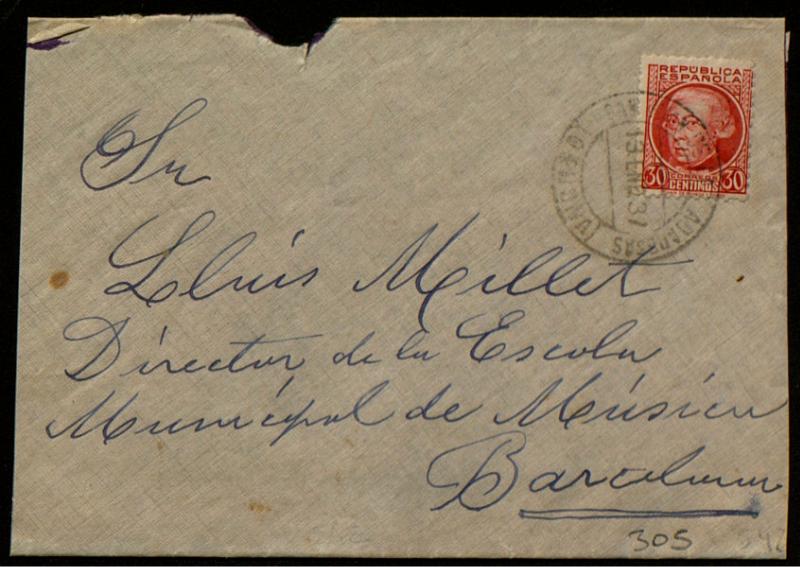 REPÚBLICA
ESPAÑOLA
30 CORREOS 30
CENTIMOS
13 ENE 37
Sr
Lluis Millet
Director de la Escola
Municipal de Música
Barcelona
305